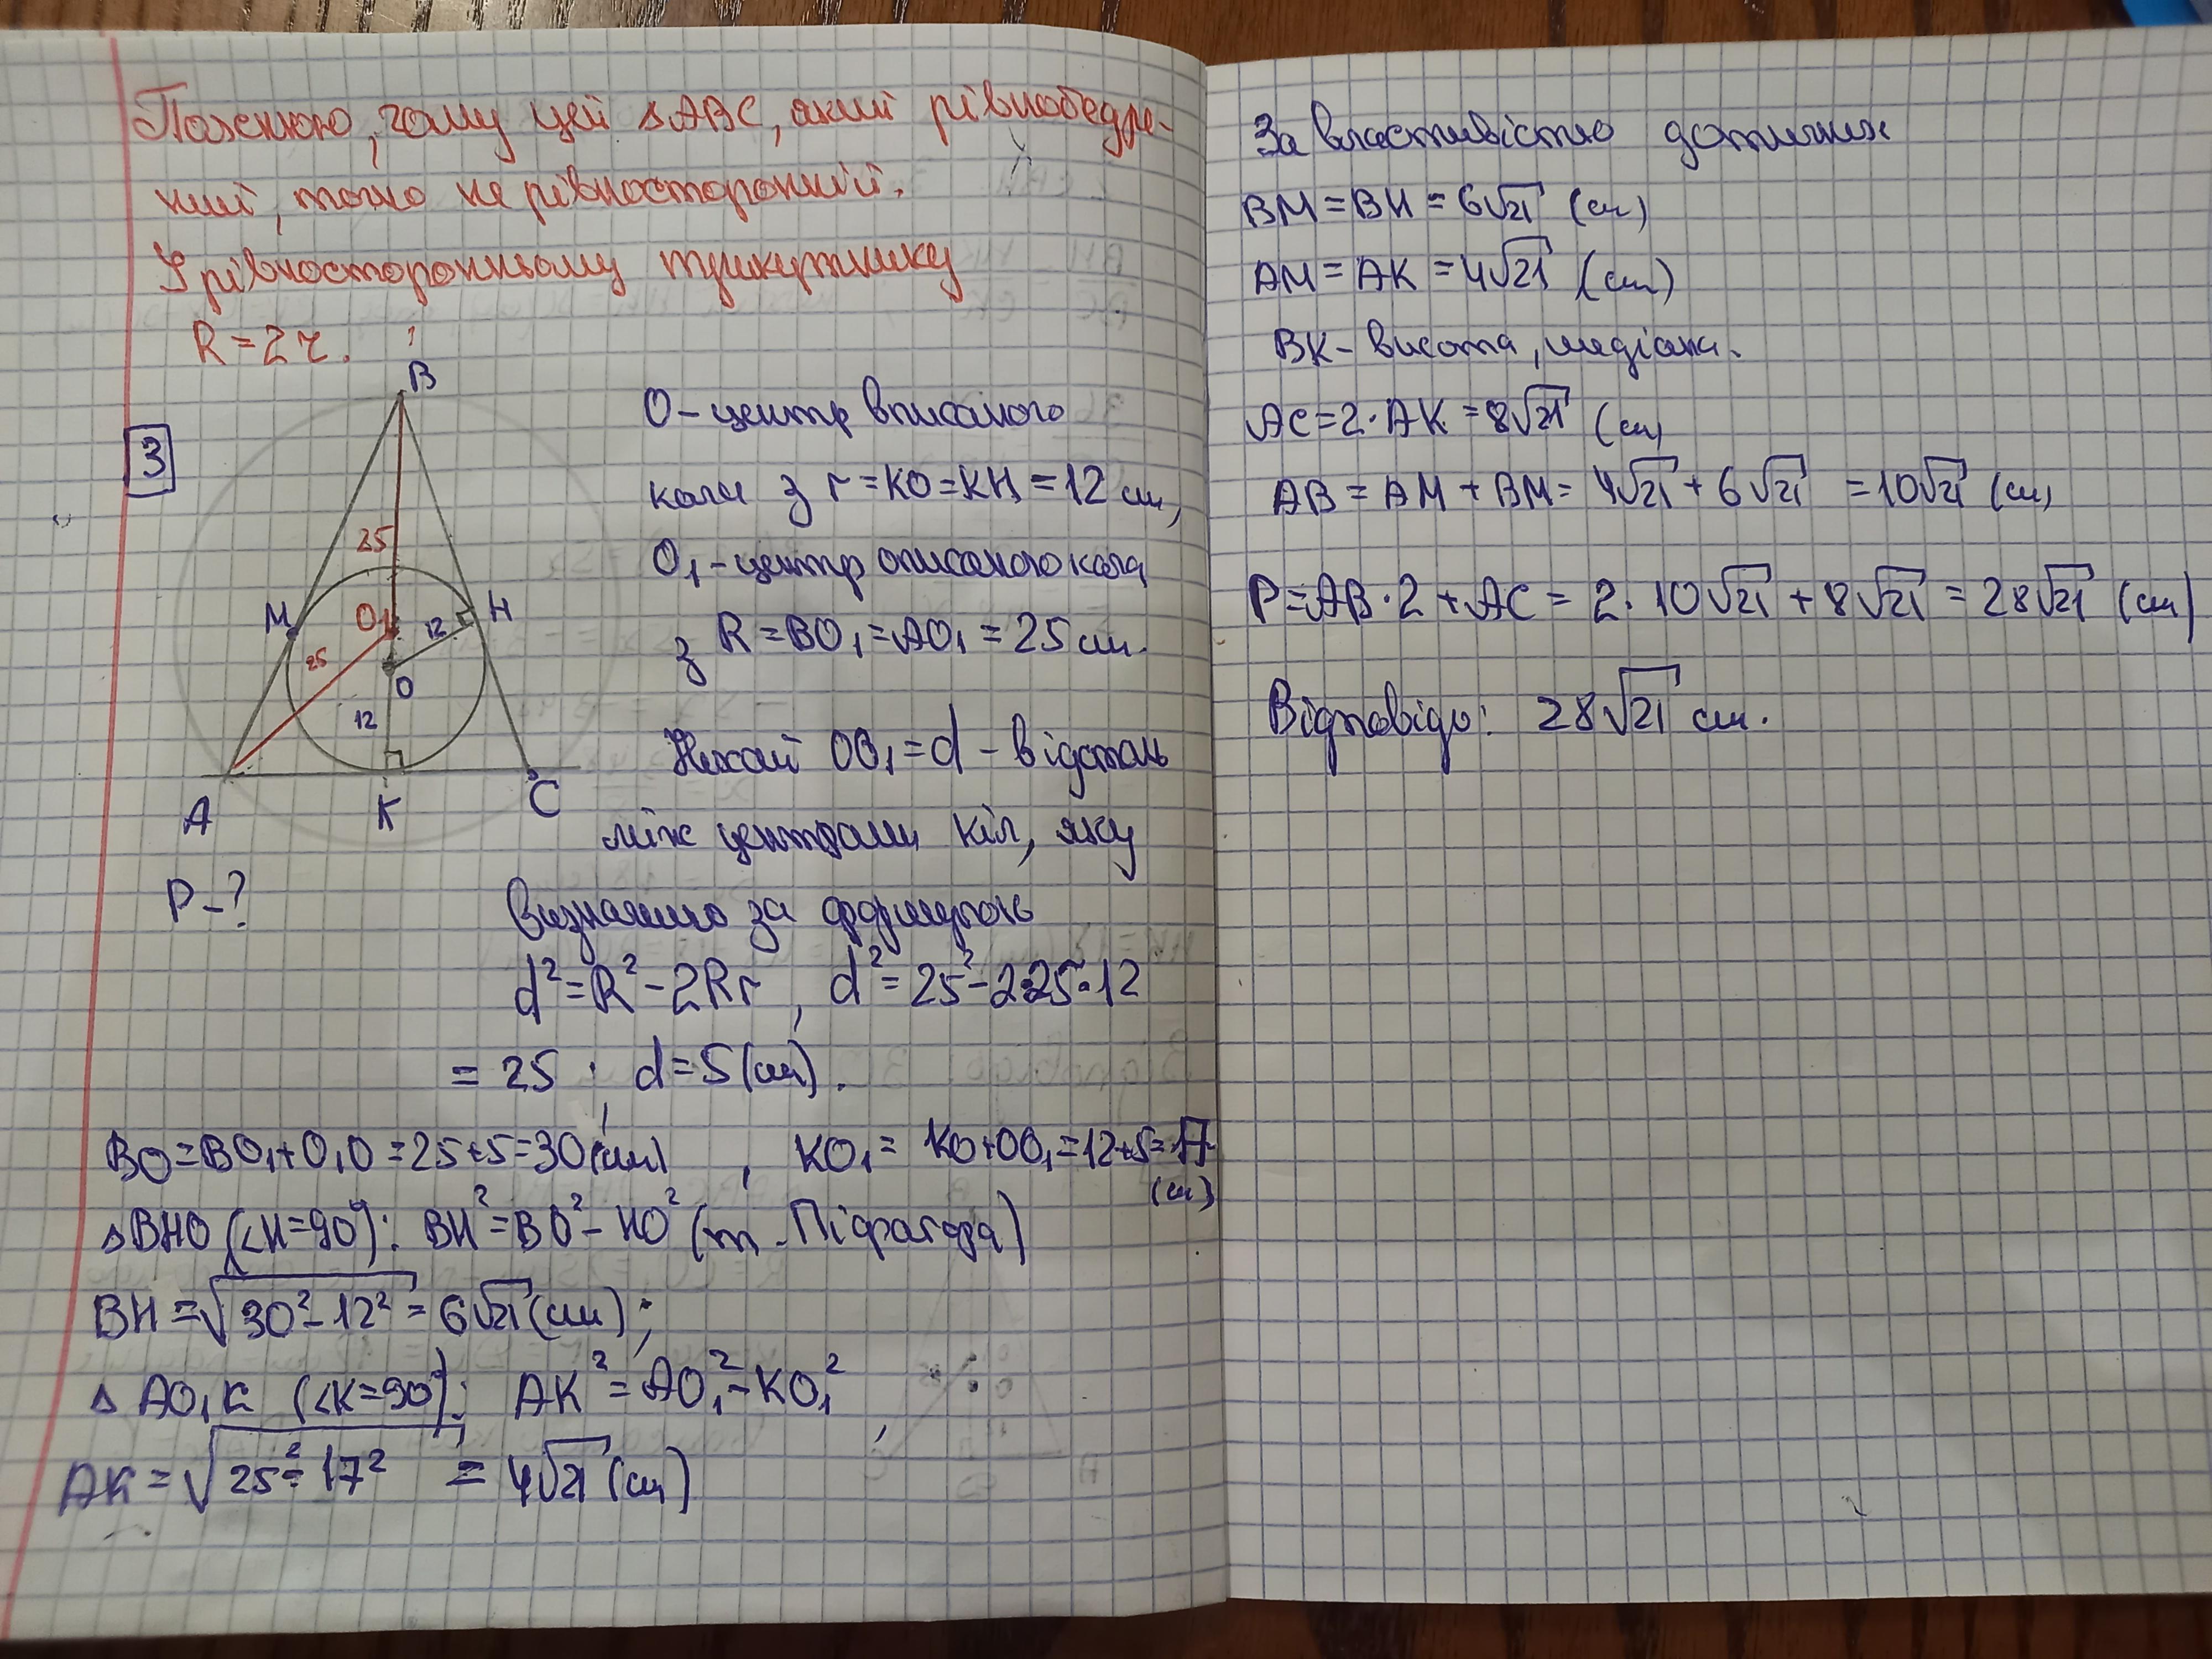 Пояснюю, чому цей ΔABC, який рівнобедре-
ний, точно не рівносторонній.
У рівносторонньому трикутнику
R = 2r.
3
B
25
M
O₁
12
H
25
O
12
A
K
C
P - ?
O - центр вписаного
кола з r = KO = KH = 12 см,
O₁ - центр описаного кола
з R = BO₁ = AO₁ = 25 см.
Нехай OO₁ = d - відстань
між центрами кіл, яку
визначимо за формулою
d² = R² - 2Rr, d² = 25² - 2·25·12
= 25; d = 5 (см).
BO = BO₁ + O₁O = 25 + 5 = 30 (см), KO₁ = KO + OO₁ = 12 + 5 = 17
(см)
ΔBHO (∠H = 90°): BH² = BO² - HO² (т. Піфагора)
BH = √(30² - 12²) = 6√21 (см);
ΔAO₁K (∠K = 90°): AK² = AO₁² - KO₁²,
AK = √(25² - 17²) = 4√21 (см)
За властивістю дотичних
BM = BH = 6√21 (см)
AM = AK = 4√21 (см)
BK - висота, медіана.
AC = 2·AK = 8√21 (см)
AB = AM + BM = 4√21 + 6√21 = 10√21 (см)
P = AB·2 + AC = 2·10√21 + 8√21 = 28√21 (см)
Відповідь: 28√21 см.